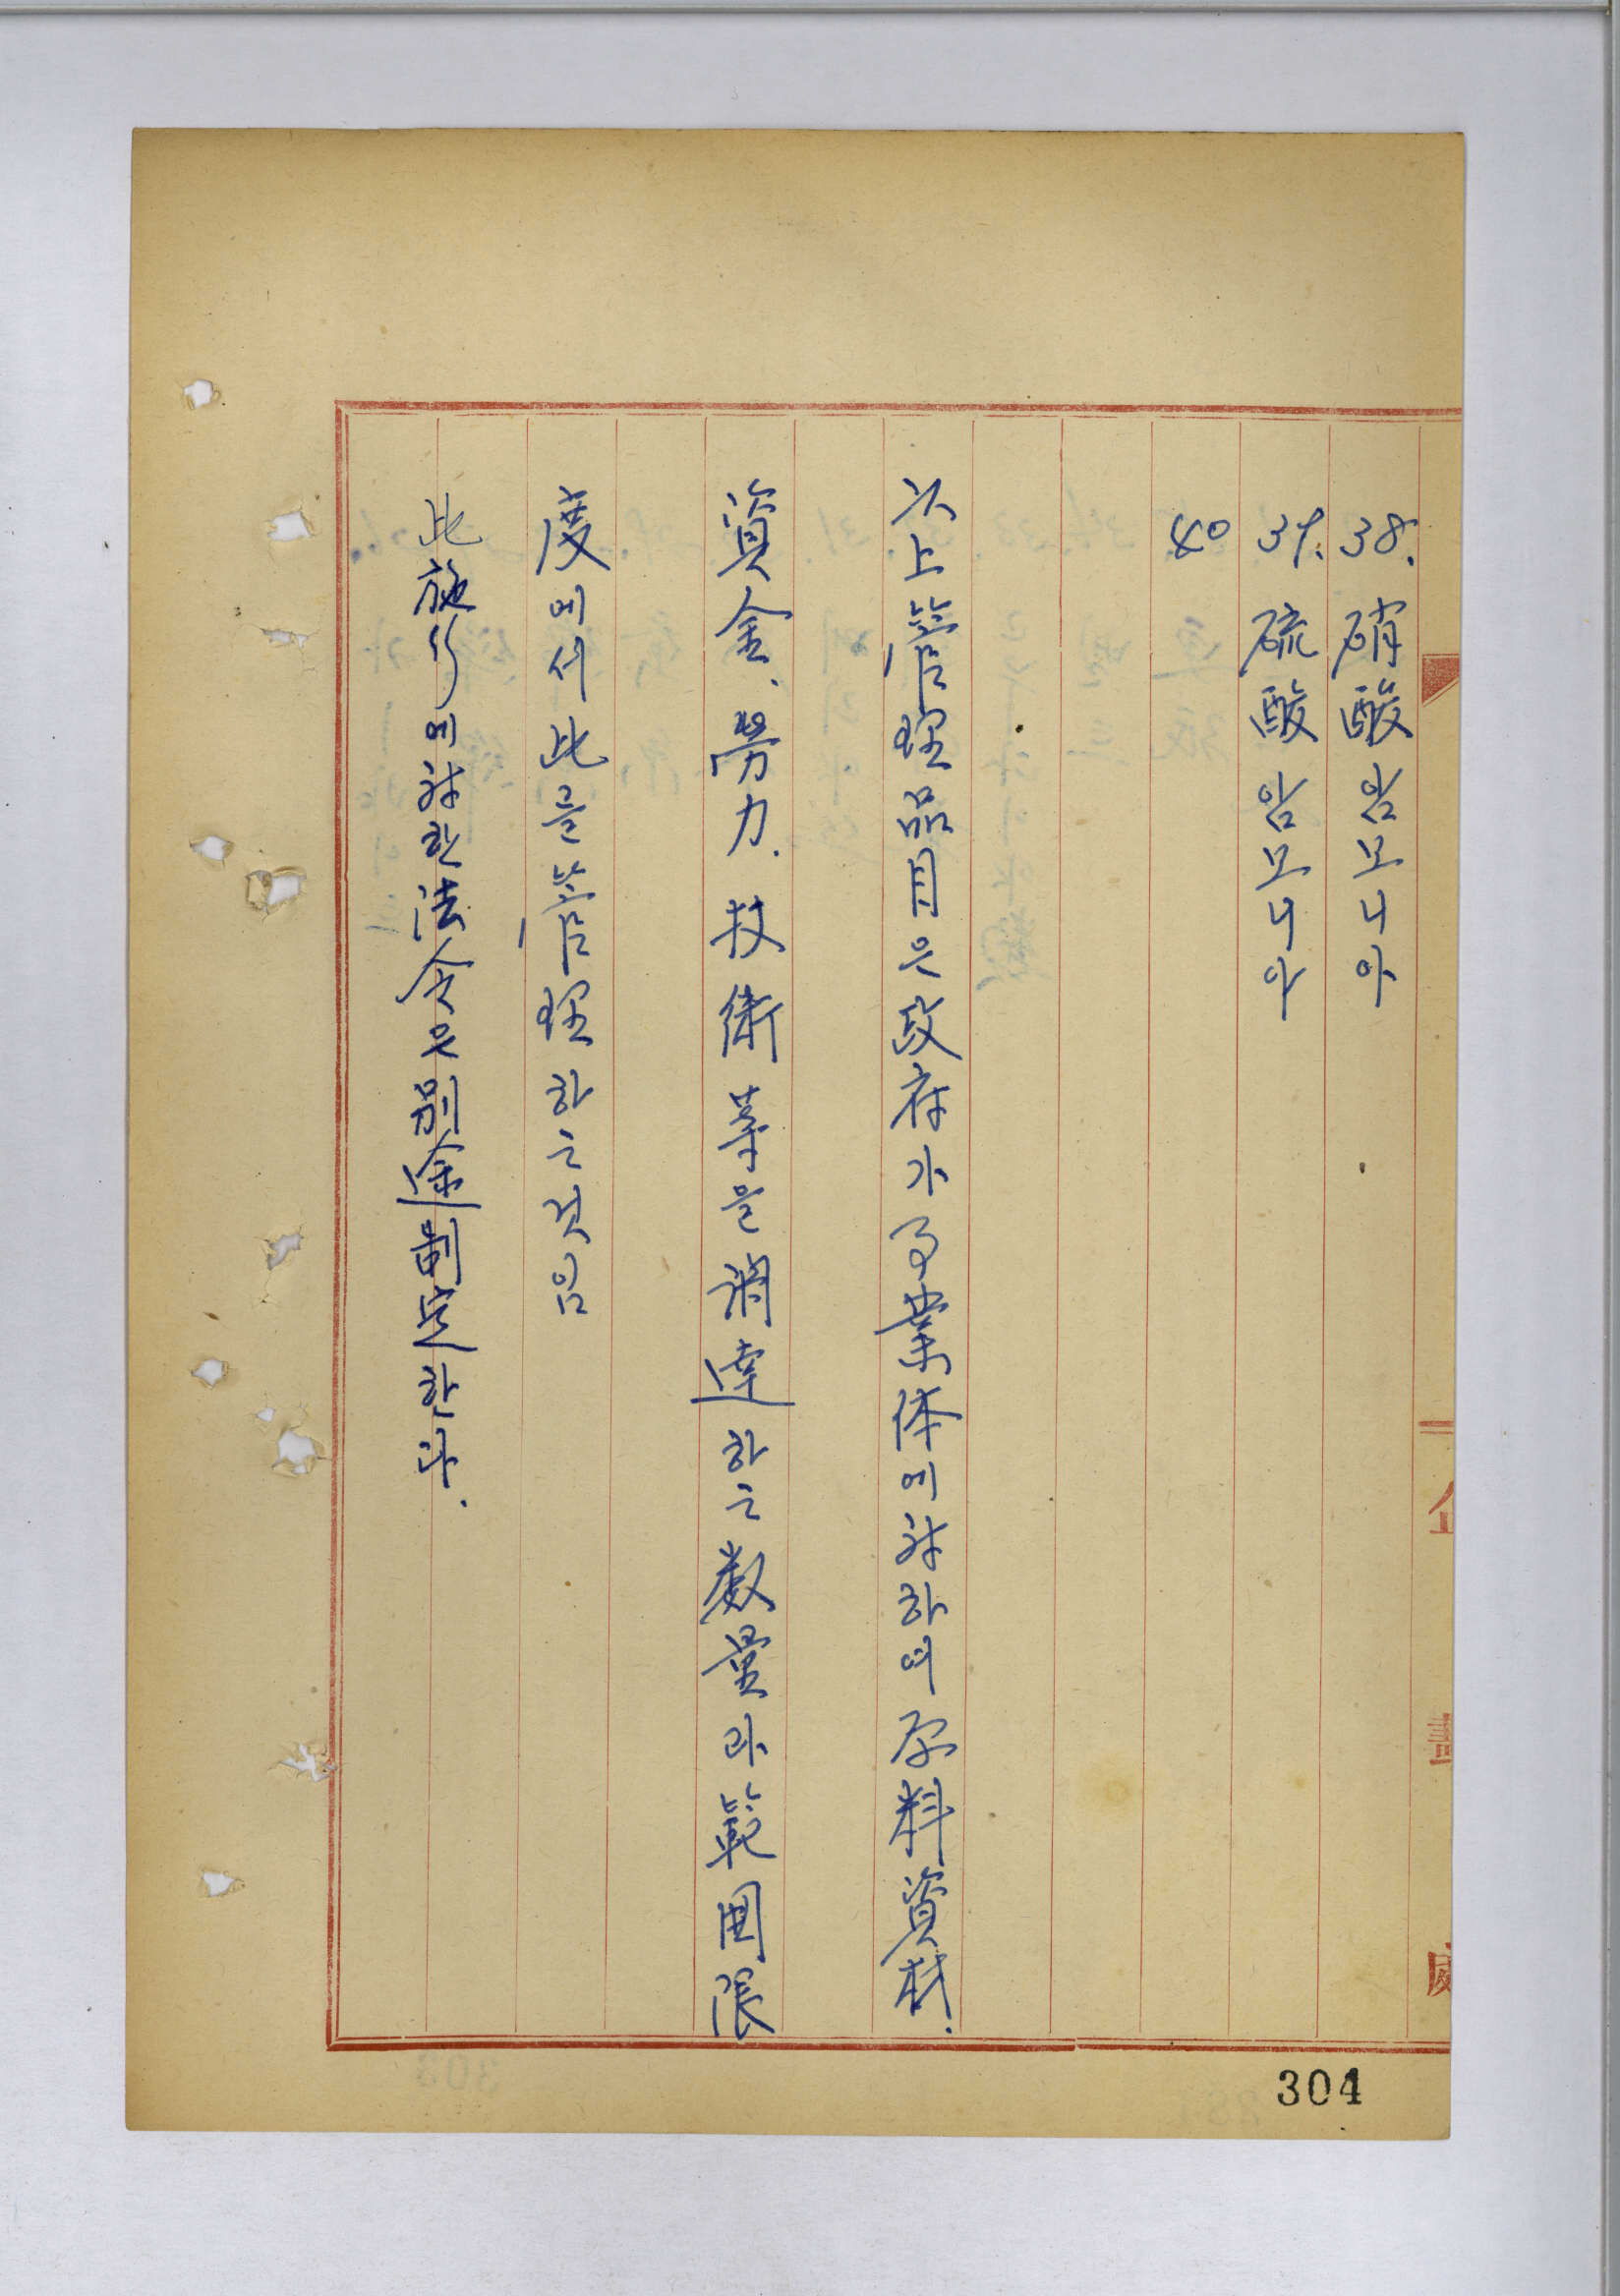 38. 硝酸암모니우
39. 硫酸암모니우
40
以上管理品目은政府가事業体에対하의原料資材.
資金.勞力.技術等을調達하는数量과範囲限
度에서此를管理하는것임
此施行에対한法令은別途制定한다.
304